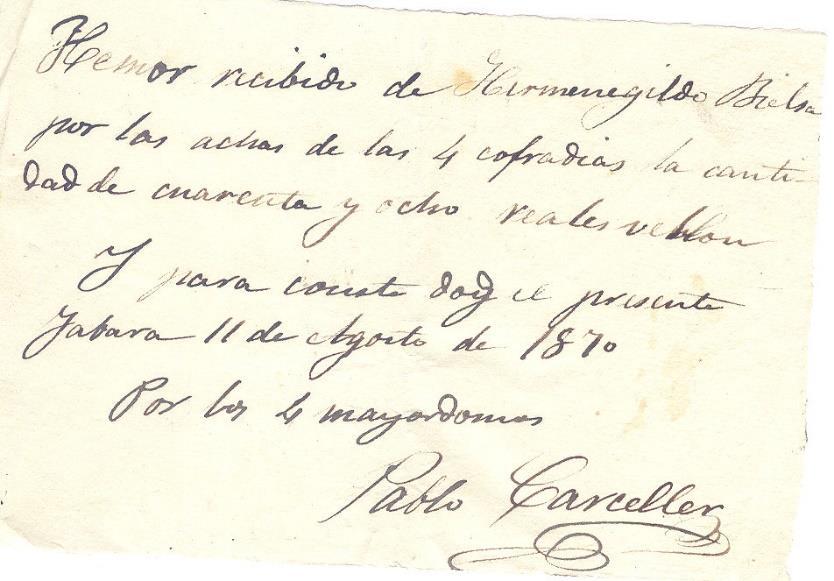 Hemos recibido de Hermenegildo Bielsa
por las achas de las 4 cofradias la canti-
dad de cuarenta y ocho reales vellon
Y para conste doy el presente
Fabara 11 de Agosto de 1870
Por los 4 mayordomos
Pablo Carceller